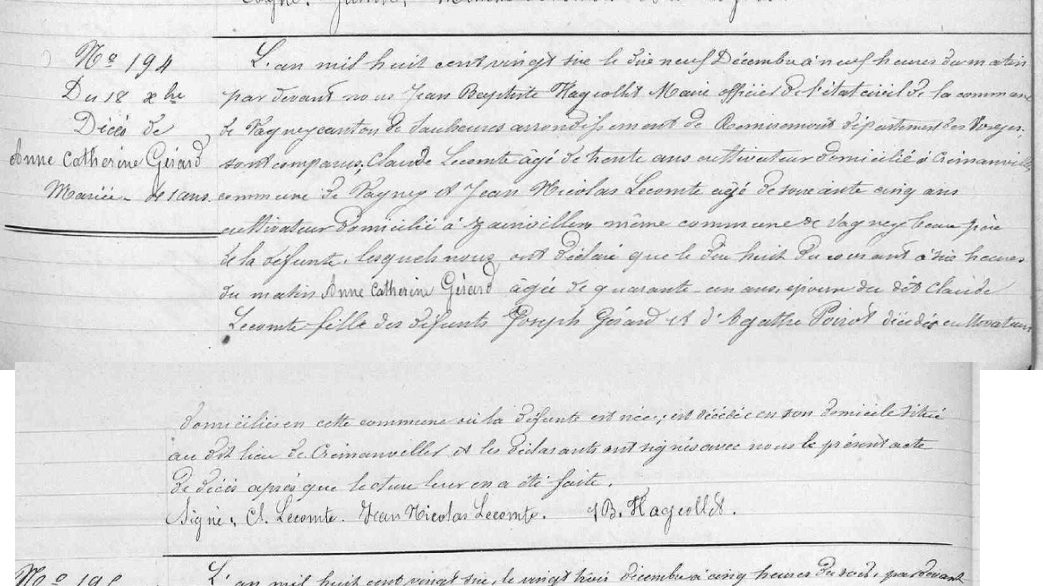 Nº 194
Du 18 xbre
Décès de
Anne Catherine Gérard
Mariée 41 ans.
L'an mil huit cent vingt six le dix neuf Décembre à neuf heures du matin
par devant nous Jean Baptiste Hagcollet Maire officier de l'état civil de la commune
de Vagney canton de Saulxures arrondissement de Remiremont département des Vosges,
sont comparus, Claude Lecomte âgé de trente ans cultivateur domicilié à Crémanviller,
commune de Vagney et Jean Nicolas Lecomte âgé de soixante cinq ans
cultivateur domicilié à Zainviller, même commune de Vagney beau père
de la défunte, lesquels nous ont déclaré que le dix huit du courant à six heures
du matin Anne Catherine Gérard âgée de quarante un ans, épouse du dit Claude
Lecomte fille des défunts Joseph Gérard et d'Agathe Poirot décédés cultivateurs
domiciliés en cette commune où la défunte est née; est décédée en son domicile situé
au dit lieu de Crémanviller et les déclarants ont signés avec nous le présent acte
de décès après que lecture leur en a été faite.
Signé, Cl. Lecomte. Jean Nicolas Lecomte. J B. Hagcollet.
L'an mil huit cent vingt six, le vingt huit décembre à cinq heures du soir, par devant